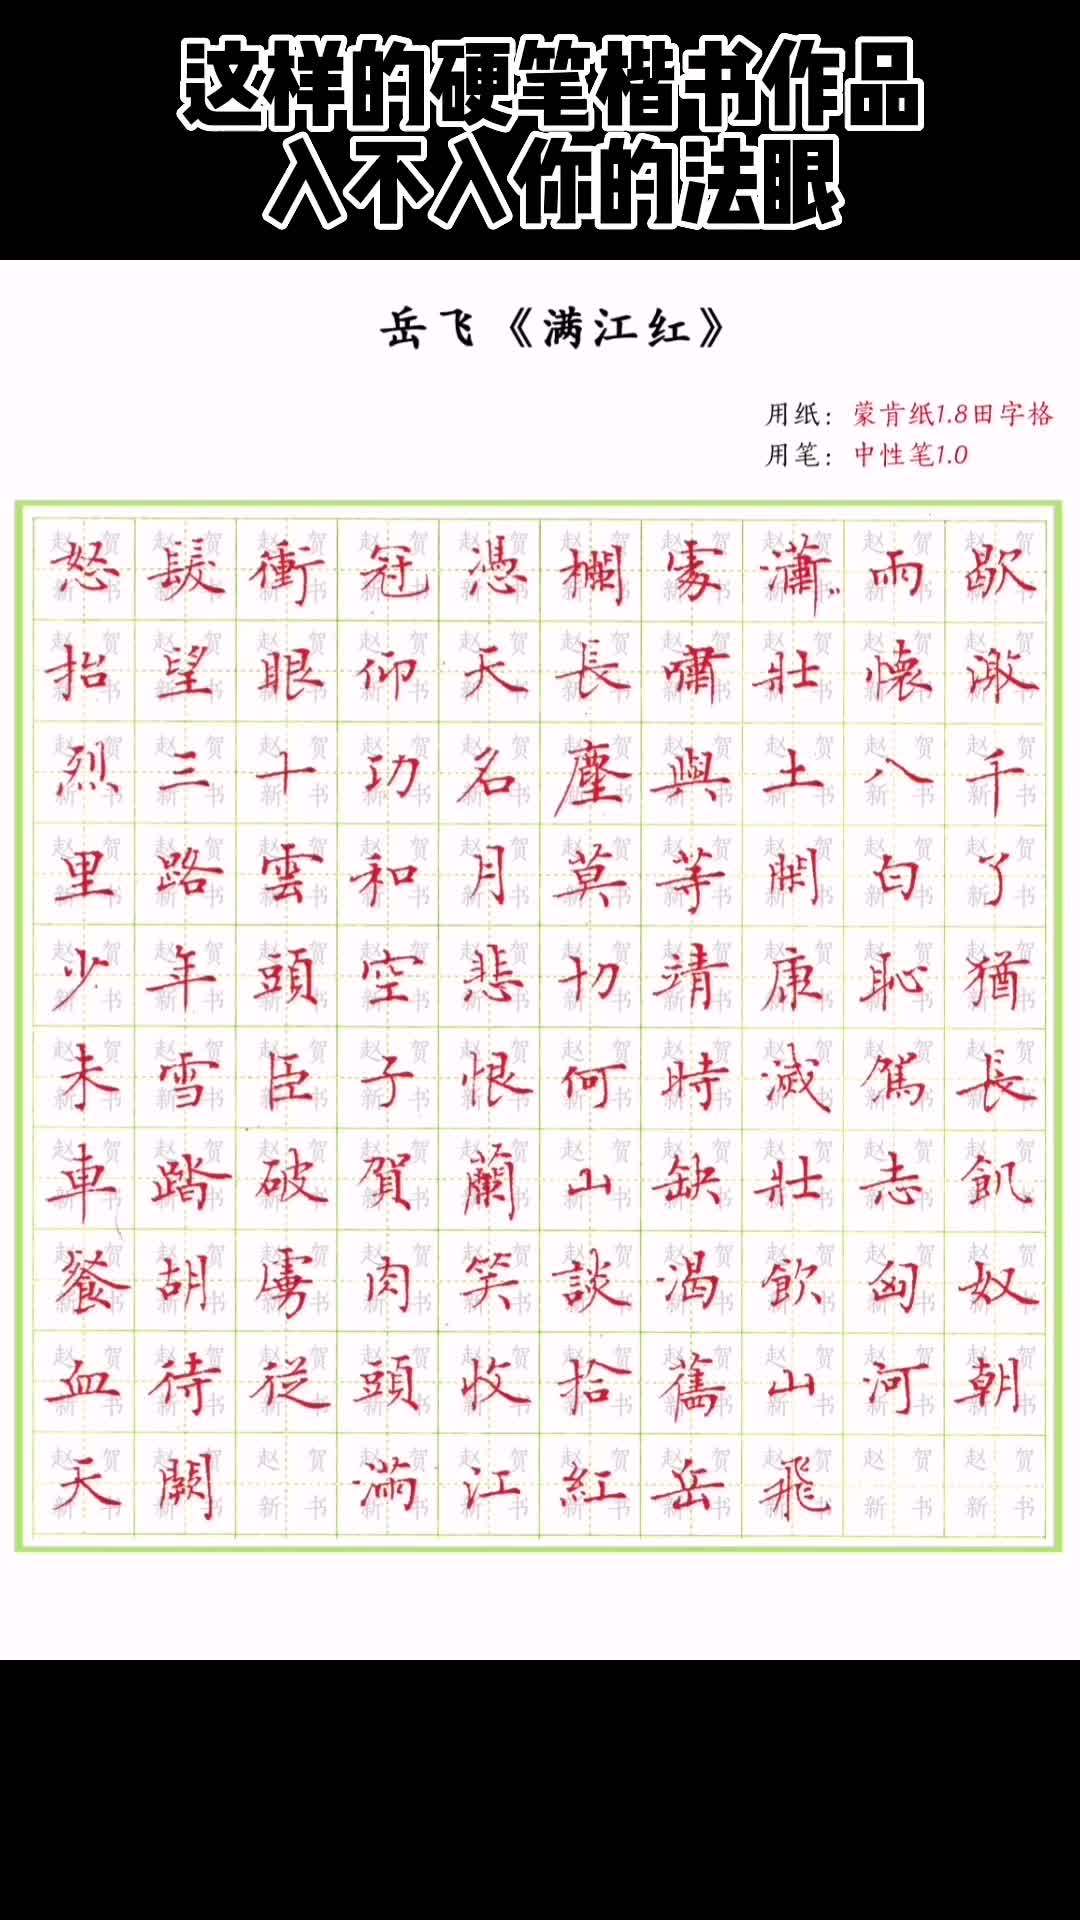 这样的硬笔楷书作品
入不入你的法眼
岳飞《满江红》
用纸：蒙肯纸1.8田字格
用笔：中性笔1.0
怒髮衝冠憑欄處瀟雨歇
抬望眼仰天長嘯壯懷激
烈三十功名塵與土八千
里路雲和月莫等閑白了
少年頭空悲切靖康恥猶
未雪臣子恨何時滅駕長
車踏破賀蘭山缺壯志飢
餐胡虜肉笑談渴飲匈奴
血待從頭收拾舊山河朝
天闕 滿江紅岳飛